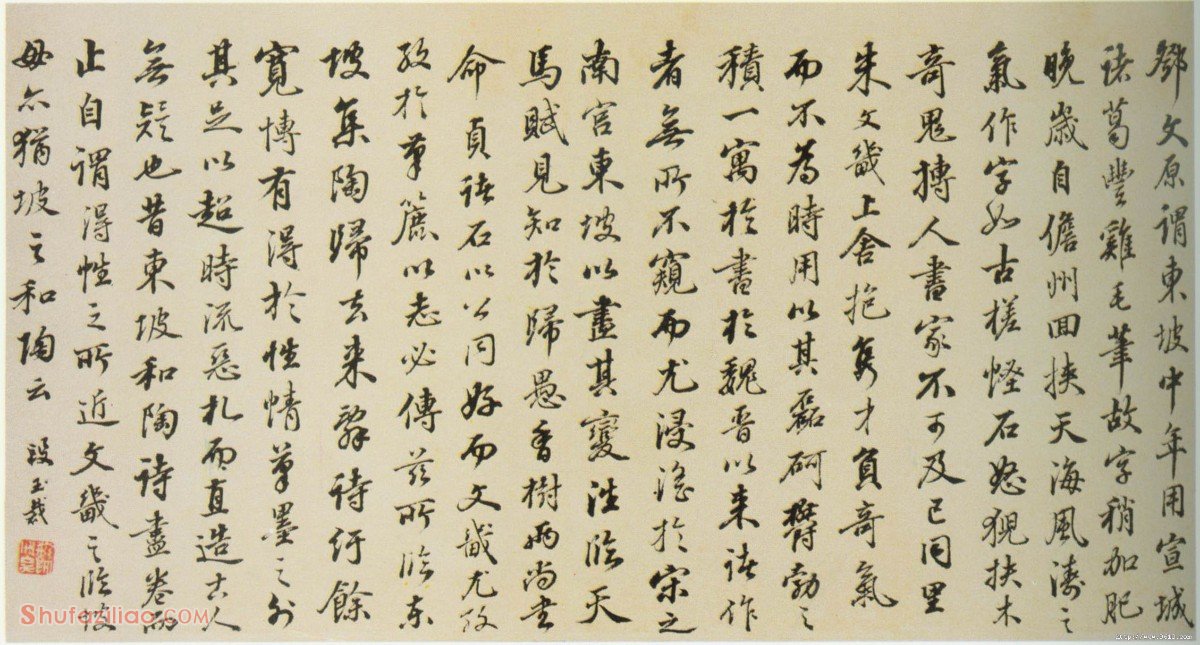 鄧文原謂東坡中年用宣城
諸葛豐雞毛筆故字稍加肥
晚歲自儋州回挾天海風濤之
氣作字如古槎怪石怒猊扶木
奇鬼搏人書家不可及已同里
朱文畿上舍抱雋才負奇氣
而不為時用以其磊砢鬱勃之
積一寓於書於魏晉以來諸作
者無所不窺而尤浸淫於宋之
南宮東坡以盡其變法臨天
馬賦見知於歸愚香樹兩尚書
命貞諸石以公同好而文畿尤致
於草麓以老必傳茲所臨東
坡集陶歸去來辭詩紆餘
寬博有得於性情筆墨之外
其足以超時流惡札而直造古人
無疑也昔東坡和陶詩盡卷而
止自謂得性之所近文畿之臨坡
毋亦猶坡之和陶云
段玉裁
Shufaziliao.com